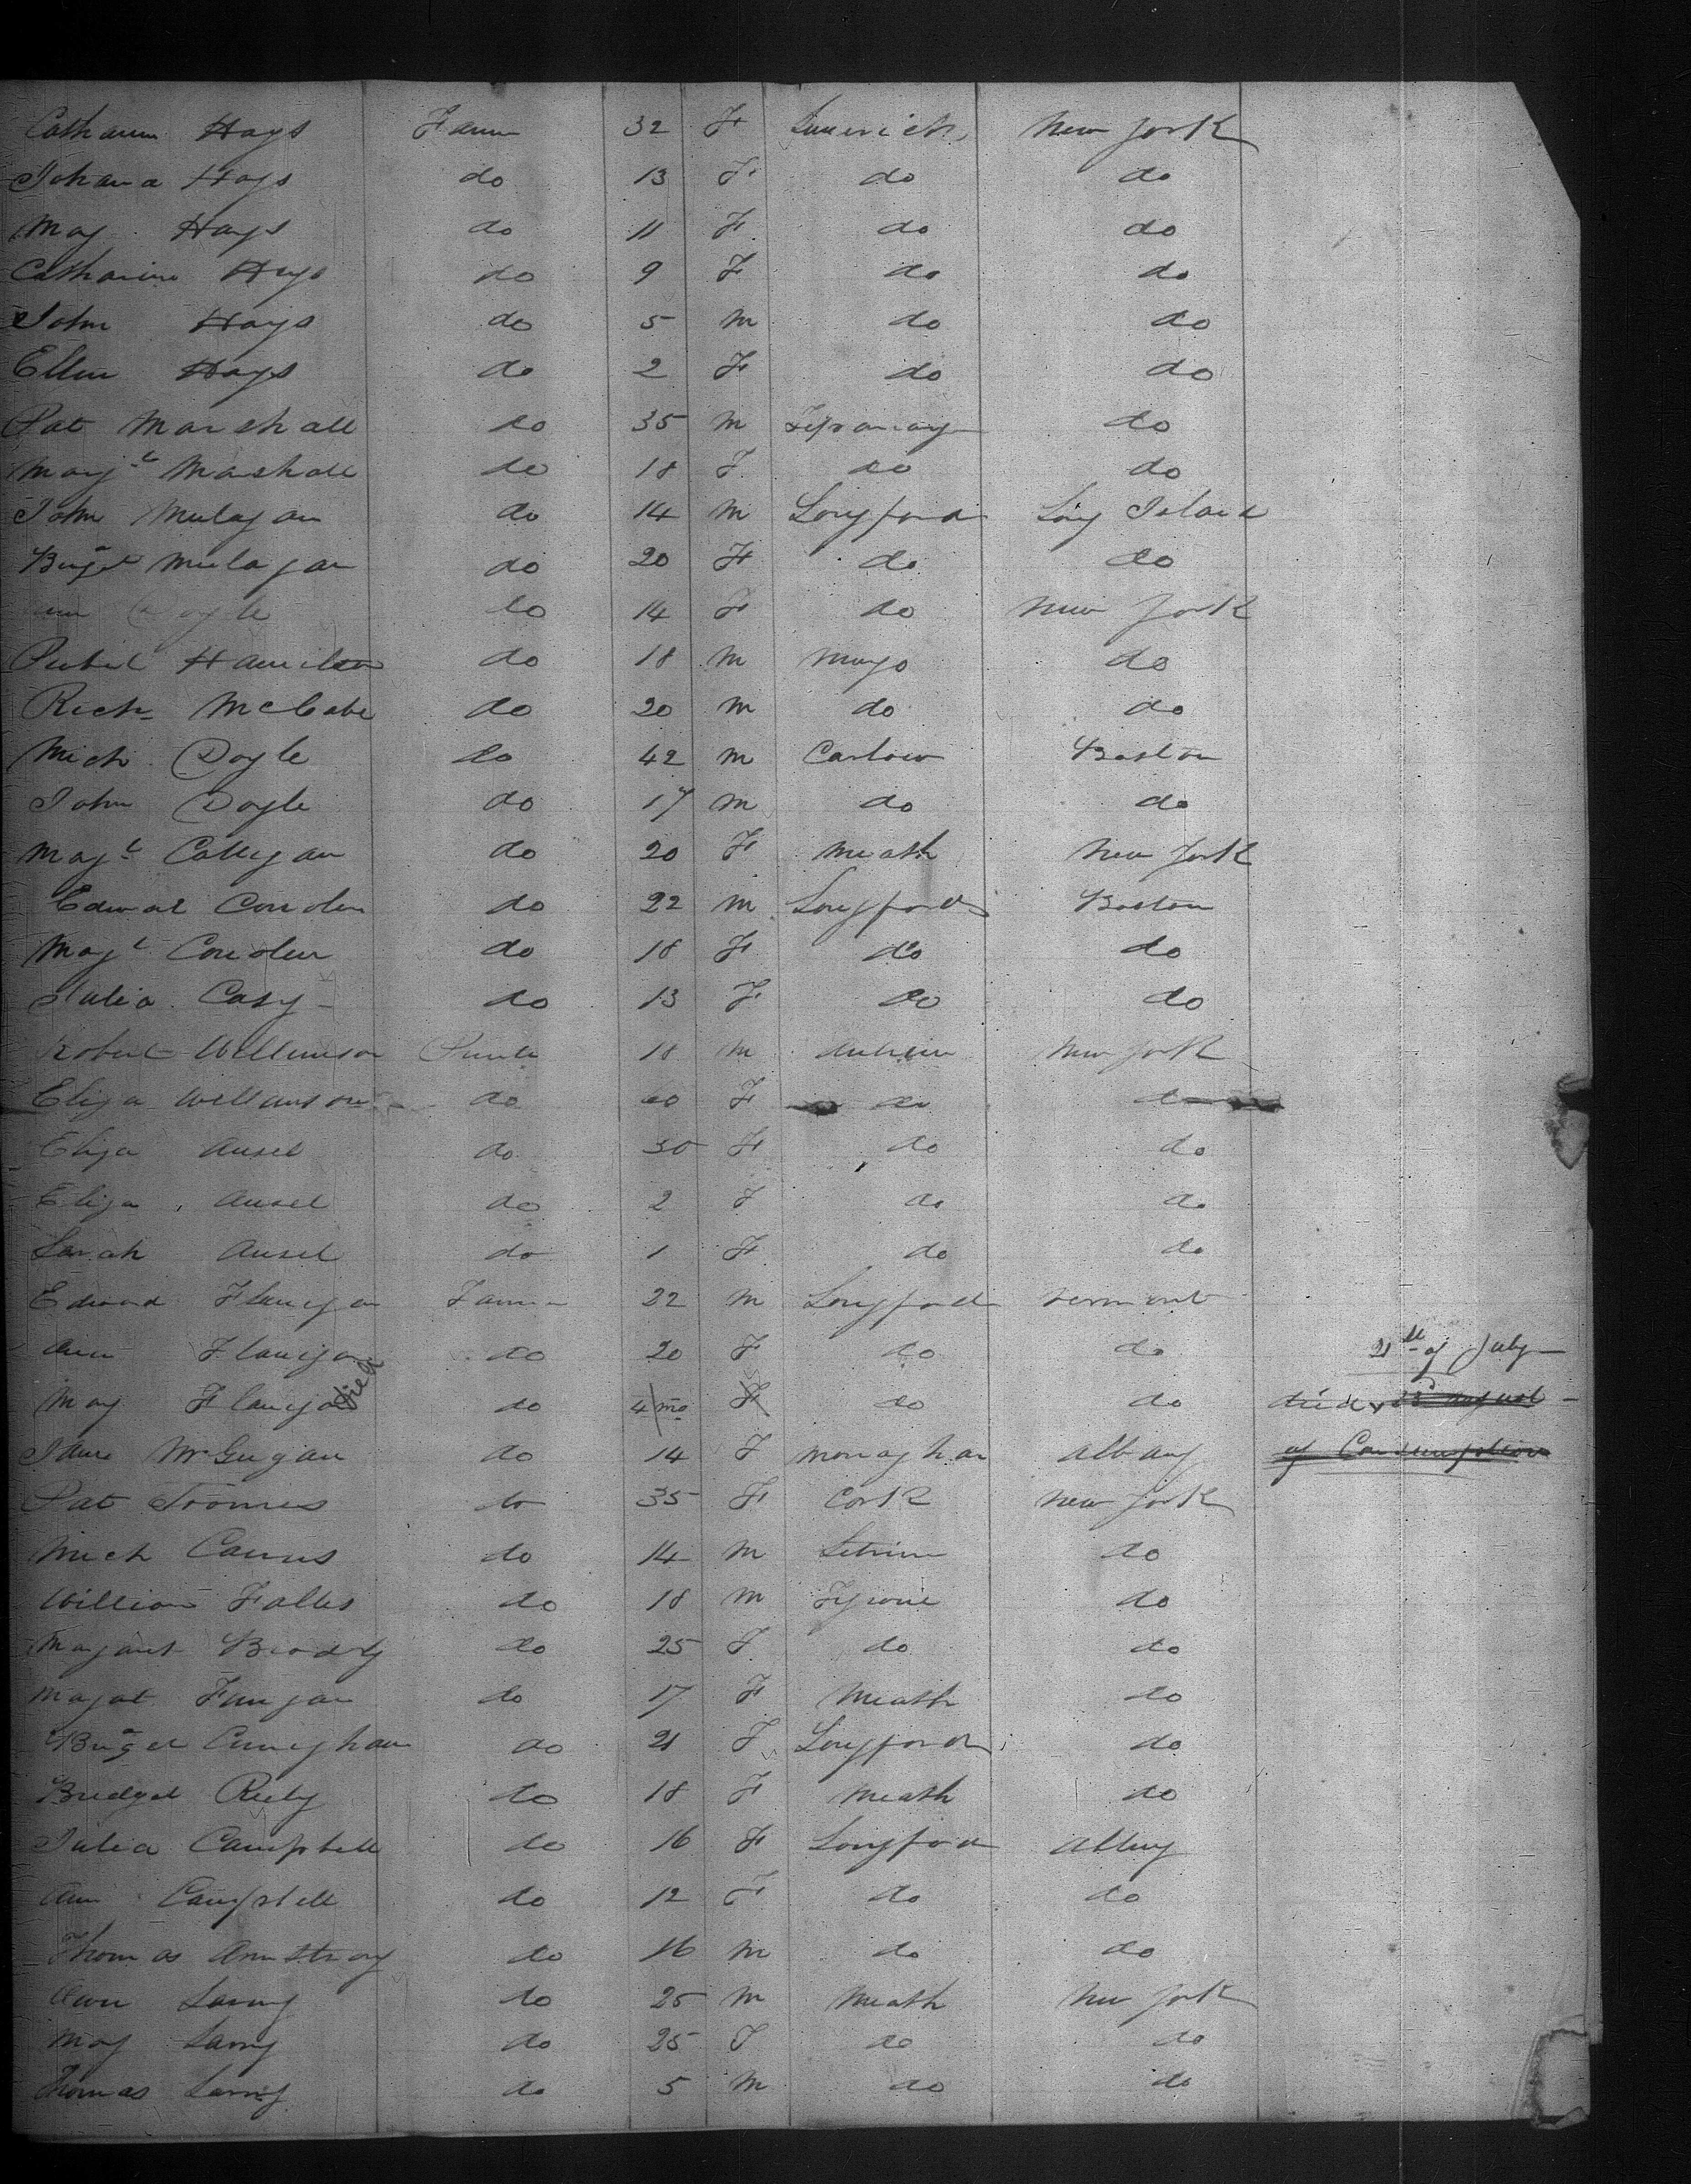 Catharine Hays Farm 32 F Limerick New York
Johana Hays do 13 F do do
May Hays do 11 F do do
Catharine Hays do 9 F do do
John Hays do 5 M do do
Ellen Hays do 2 F do do
Pat Marshall do 35 M Tipperary do
Margt Marshall do 18 F do do
John Mulagan do 14 M Longford Long Island
Briget Mulagan do 20 F do do
Doyle do 14 F do New York
Hamilton do 18 M Mayo do
Rich McCabe do 20 M do do
Mich Doyle do 42 M Carlow Boston
John Doyle do 17 M do do
Magt Calligan do 20 F Meath New York
Edward Conolen do 22 M Longford Boston
Magt Conolen do 18 F do do
Julia Casy do 13 F do do
Robert Williamson 18 M New York
Eliza Williamson do 60 F do do
Eliza Ansel do 30 F do do
Eliza Ansel do 2 F do do
Sarah Ansel do 1 F do do
Edward Flanigan Farmer 22 M Longford Vermont
Ann Flanigan do 20 F do do 21st of July
May Flanigan died do 4 mo F do do died 23d August
Jane McGugan do 14 F Monaghan Albany of Consumption
Pat do 35 F Cork New York
Mich Carns do 14 M Letrim do
William Falls do 18 M Tyrone do
Margaret Brody do 25 F do do
Magat Finigan do 17 F Meath do
Briget Cunigham do 21 F Longford do
Bridget Riely do 18 F Meath do
Julia Campbell do 16 F Longford Albny
Ann Campbell do 12 F do do
Thomas Armstrong do 16 M do do
Own do 25 M Meath New York
May do 25 F do do
Thomas do 5 M do do